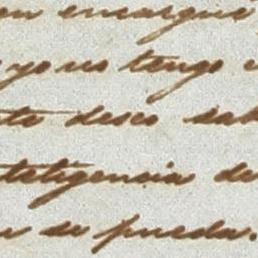 encargue
yo no tengo
deseo sab
teligencia de
se pueda.